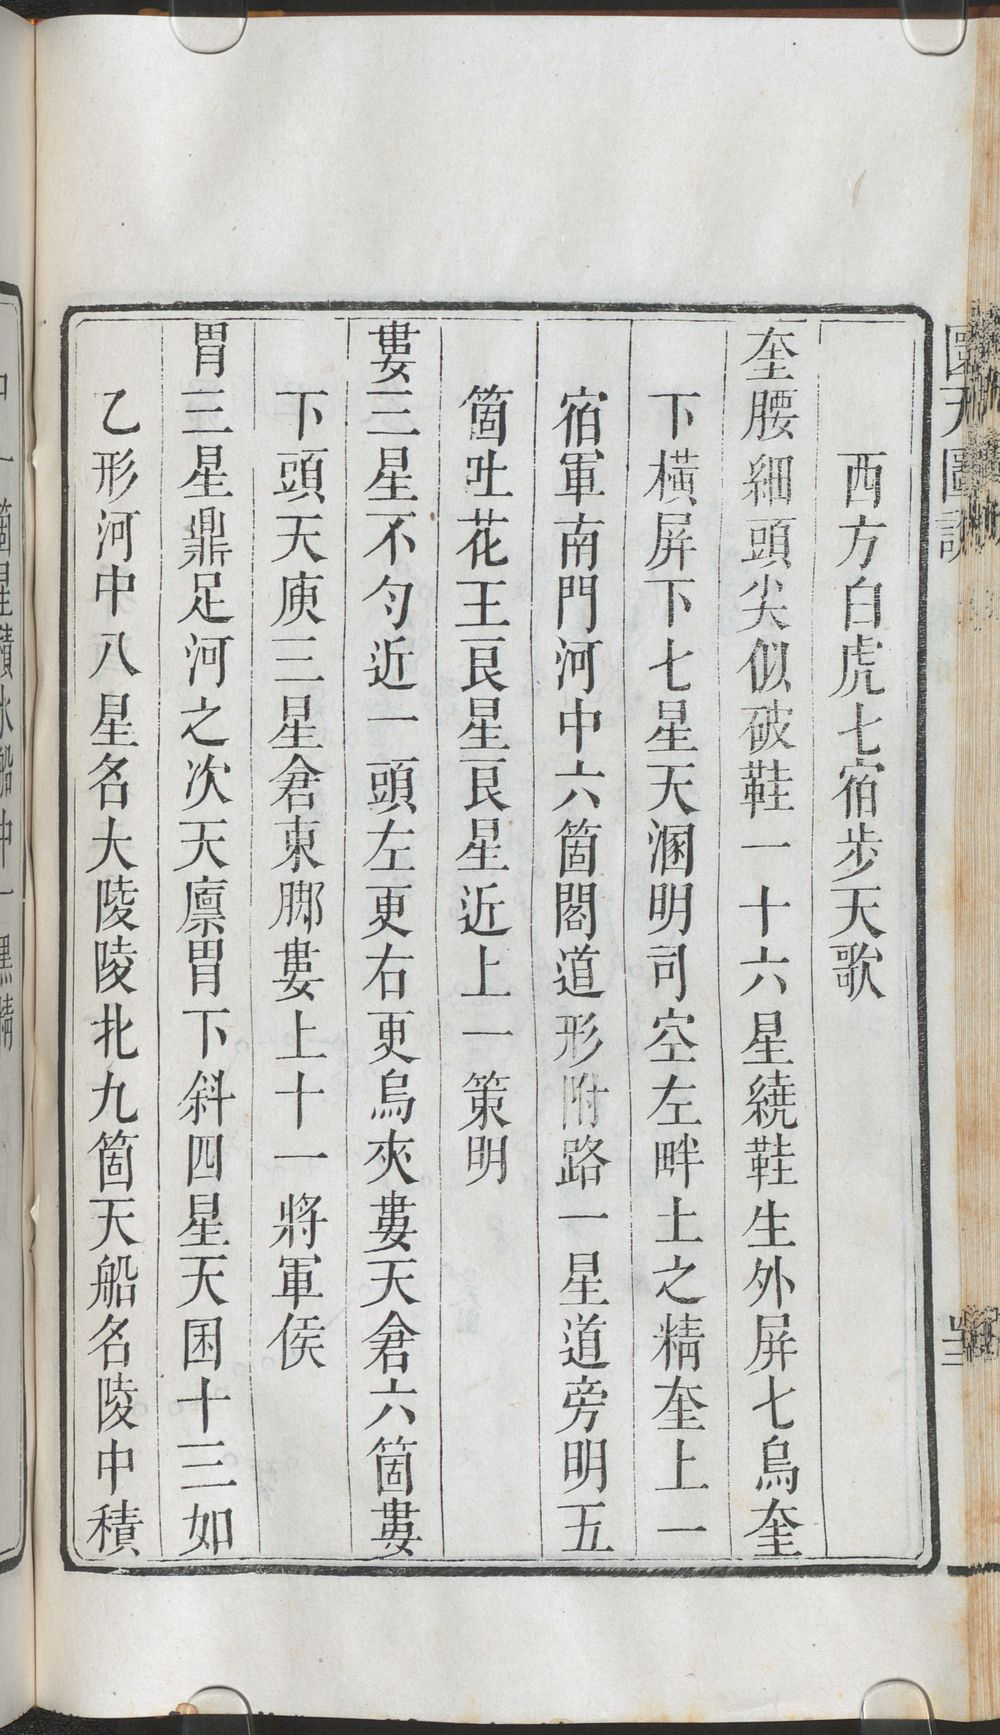 西方白虎七宿步天歌
奎腰細頭尖似破鞋一十六星繞鞋生外屏七烏奎
下橫屏下七星天溷明司空左畔土之精奎上一
宿軍南門河中六箇閣道形附路一星道旁明五
箇吐花王艮星艮星近上一策明
婁三星不勻近一頭左更右更烏夾婁天倉六箇婁
下頭天庾三星倉東脚婁上十一將軍侯
胃三星鼎足河之次天廩胃下斜四星天囷十三如
乙形河中八星名大陵陵北九箇天船名陵中積
中一箇星積水船中一黑精